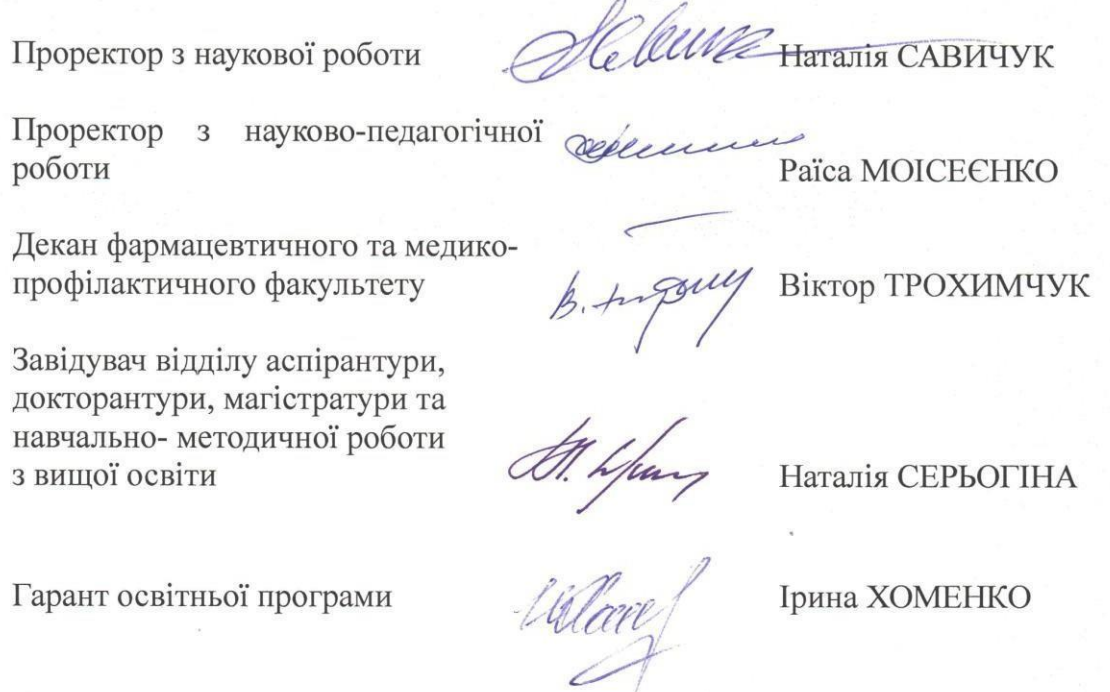 Проректор з наукової роботи Наталія САВИЧУК
Проректор з науково-педагогічної
роботи Раїса МОІСЕЄНКО
Декан фармацевтичного та медико-
профілактичного факультету Віктор ТРОХИМЧУК
Завідувач відділу аспірантури,
докторантури, магістратури та
навчально- методичної роботи
з вищої освіти Наталія СЕРЬОГІНА
Гарант освітньої програми Ірина ХОМЕНКО